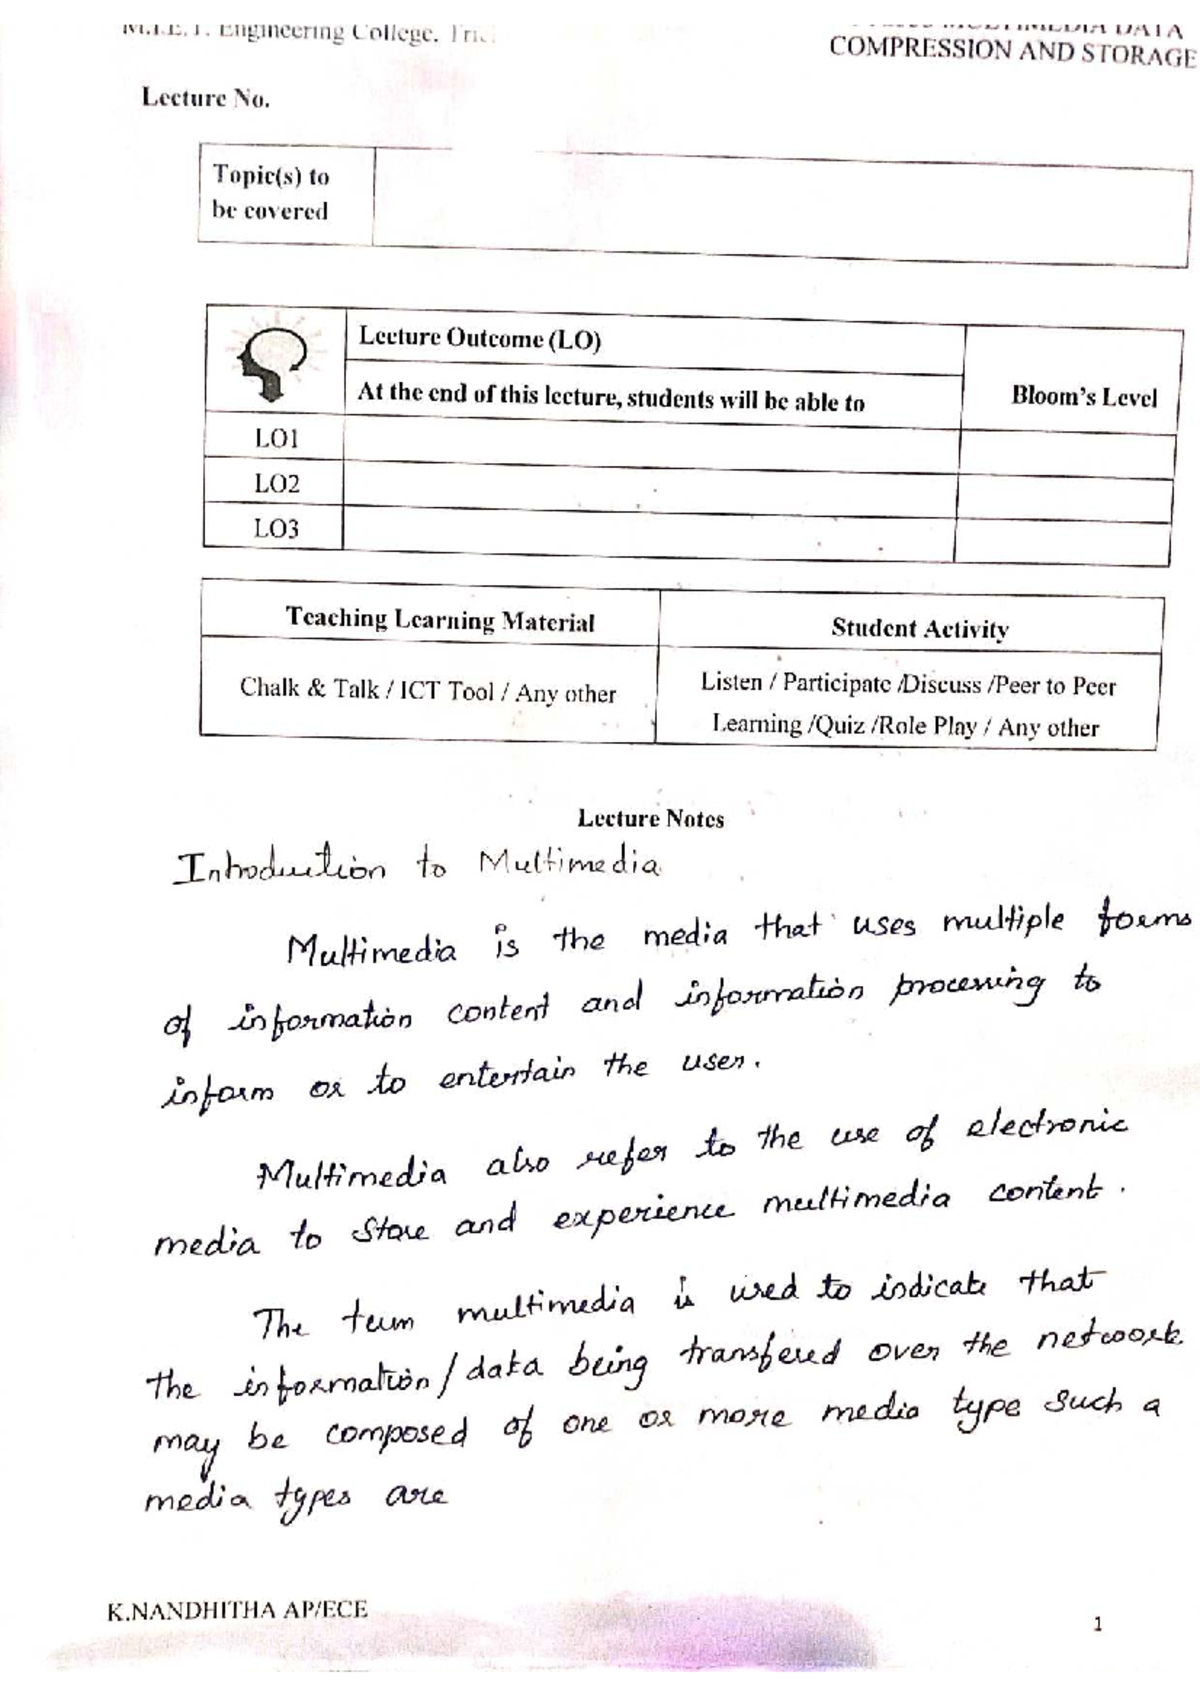 M.I.E.T. Engineering College,
MULTIMEDIA DATA
COMPRESSION AND STORAGE
Lecture No.
Topic(s) to
be covered
Lecture Outcome (LO)
At the end of this lecture, students will be able to
Bloom's Level
LO1
LO2
LO3
Teaching Learning Material
Student Activity
Chalk & Talk / ICT Tool / Any other
Listen / Participate /Discuss /Peer to Peer
Learning /Quiz /Role Play / Any other
Lecture Notes
Introduction to Multimedia
Multimedia is the media that uses multiple forms
of information content and information processing to
inform or to entertain the user.
Multimedia also refer to the use of electronic
media to store and experience multimedia content.
The term multimedia is used to indicate that
the information/data being transfered over the network
may be composed of one or more media type such a
media types are
K.NANDHITHA AP/ECE
1